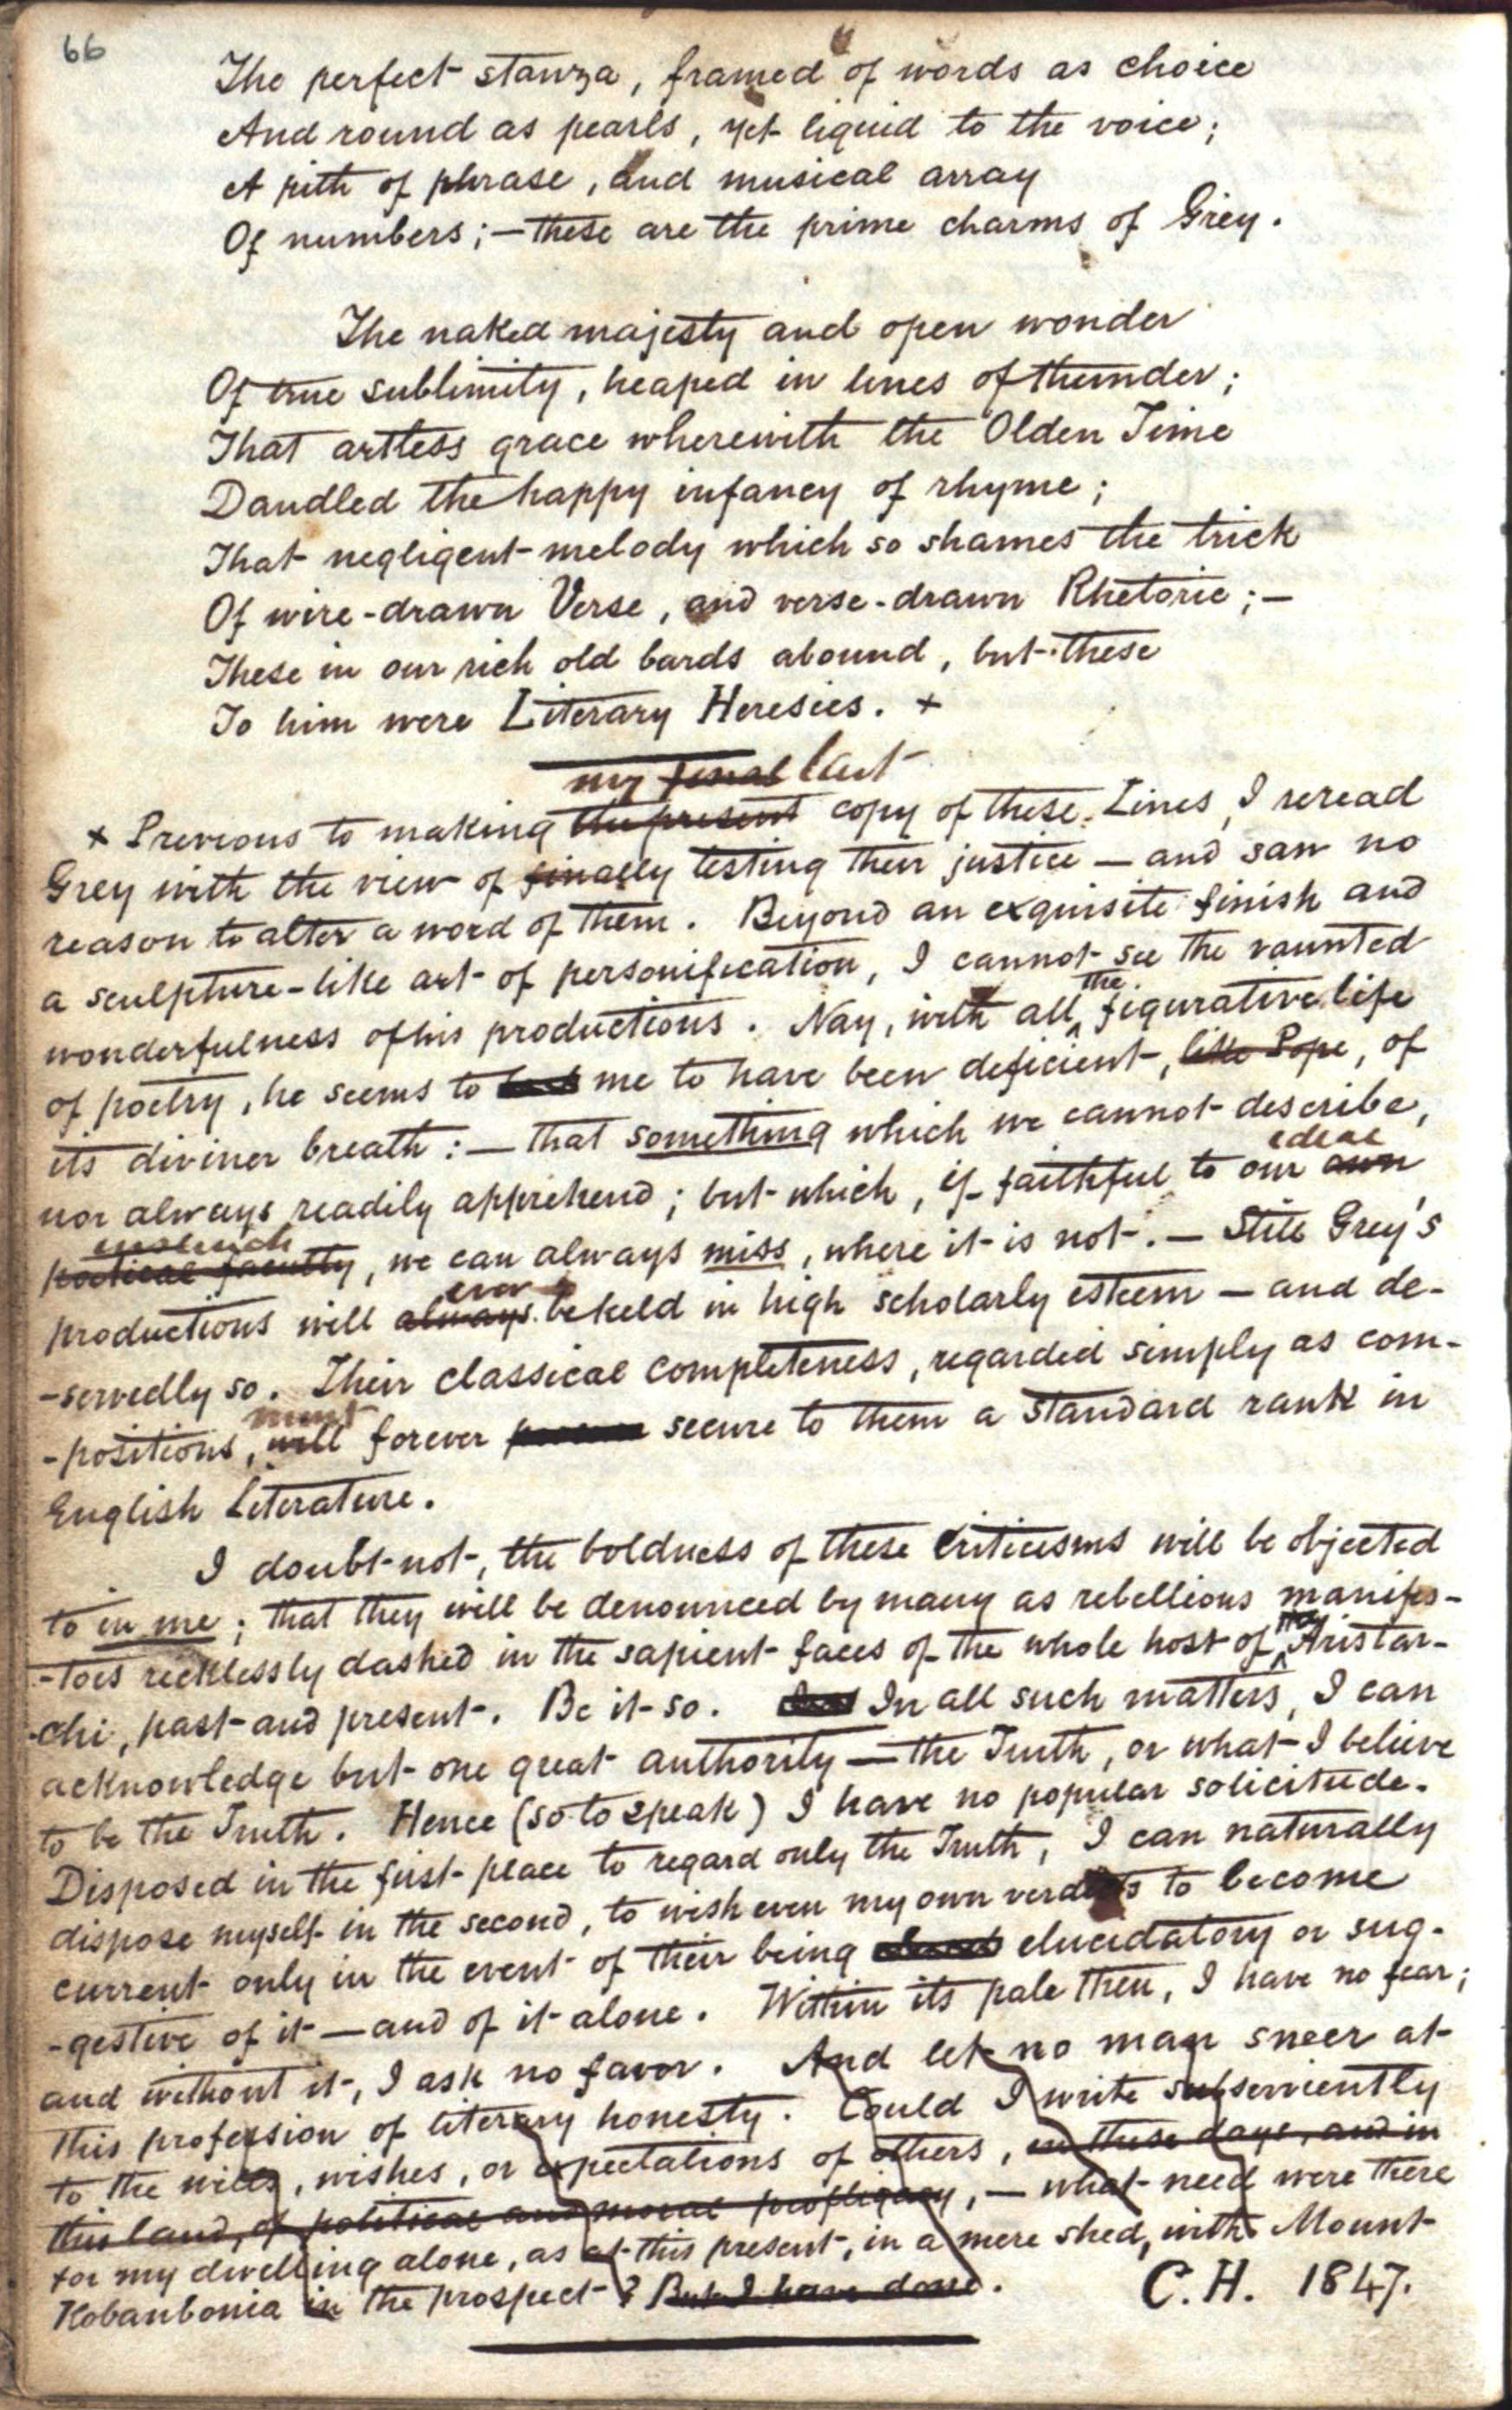 66
The perfect stanza, framed of words as choice
And round as pearls, yet liquid to the voice;
A pith of phrase, and musical array
Of numbers;—these are the prime charms of Grey.
The naked majesty and open wonder
Of true sublimity, heaped in lines of thunder;
That artless grace wherewith the Olden Time
Dandled the happy infancy of rhyme;
That negligent melody which so shames the trick
Of wire-drawn Verse, and verse-drawn Rhetoric;—
These in our rich old bards abound, but these
To him were Literary Heresies. +
my final last
+ Previous to making the present copy of these Lines, I reread
Grey with the view of finally testing their justice — and saw no
reason to alter a word of them. Beyond an exquisite finish and
a sculpture-like art of personification, I cannot see the vaunted
the
wonderfulness of his productions. Nay, with all figurative life
of poetry, he seems to me to have been deficient, like Pope, of
its diviner breath:— that something which we cannot describe,
ideal
nor always readily apprehend; but which, if faithful to our own
instinct
poetical faculty, we can always miss, where it is not.— Still Grey's
ever
productions will always be held in high scholarly esteem — and de-
-servedly so. Their classical completeness, regarded simply as com-
must
-positions, will forever secure to them a standard rank in
English Literature.
I doubt not, the boldness of these criticisms will be objected
to in me; that they will be denounced by many as rebellious manifes-
-toes recklessly dashed in the sapient faces of the whole host of Aristar-
-chi, past and present. Be it so. In all such matters, I can
acknowledge but one great authority — the Truth, or what I believe
to be the Truth. Hence (so to speak) I have no popular solicitude.
Disposed in the first place to regard only the Truth, I can naturally
dispose myself in the second, to wish even my own verdicts to become
current only in the event of their being elucidatory or sug-
-gestive of it — and of it alone. Within its pale then, I have no fear;
and without it, I ask no favor. And let no man sneer at
this profession of literary honesty. Could I write subserviently
to the wills, wishes, or expectations of others, in these days, and in
this land, of political and moral profligacy, — what need were there
for my dwelling alone, as at this present, in a mere shed, with Mount
Kobanbonia in the prospect? But I have done.
C.H. 1847.